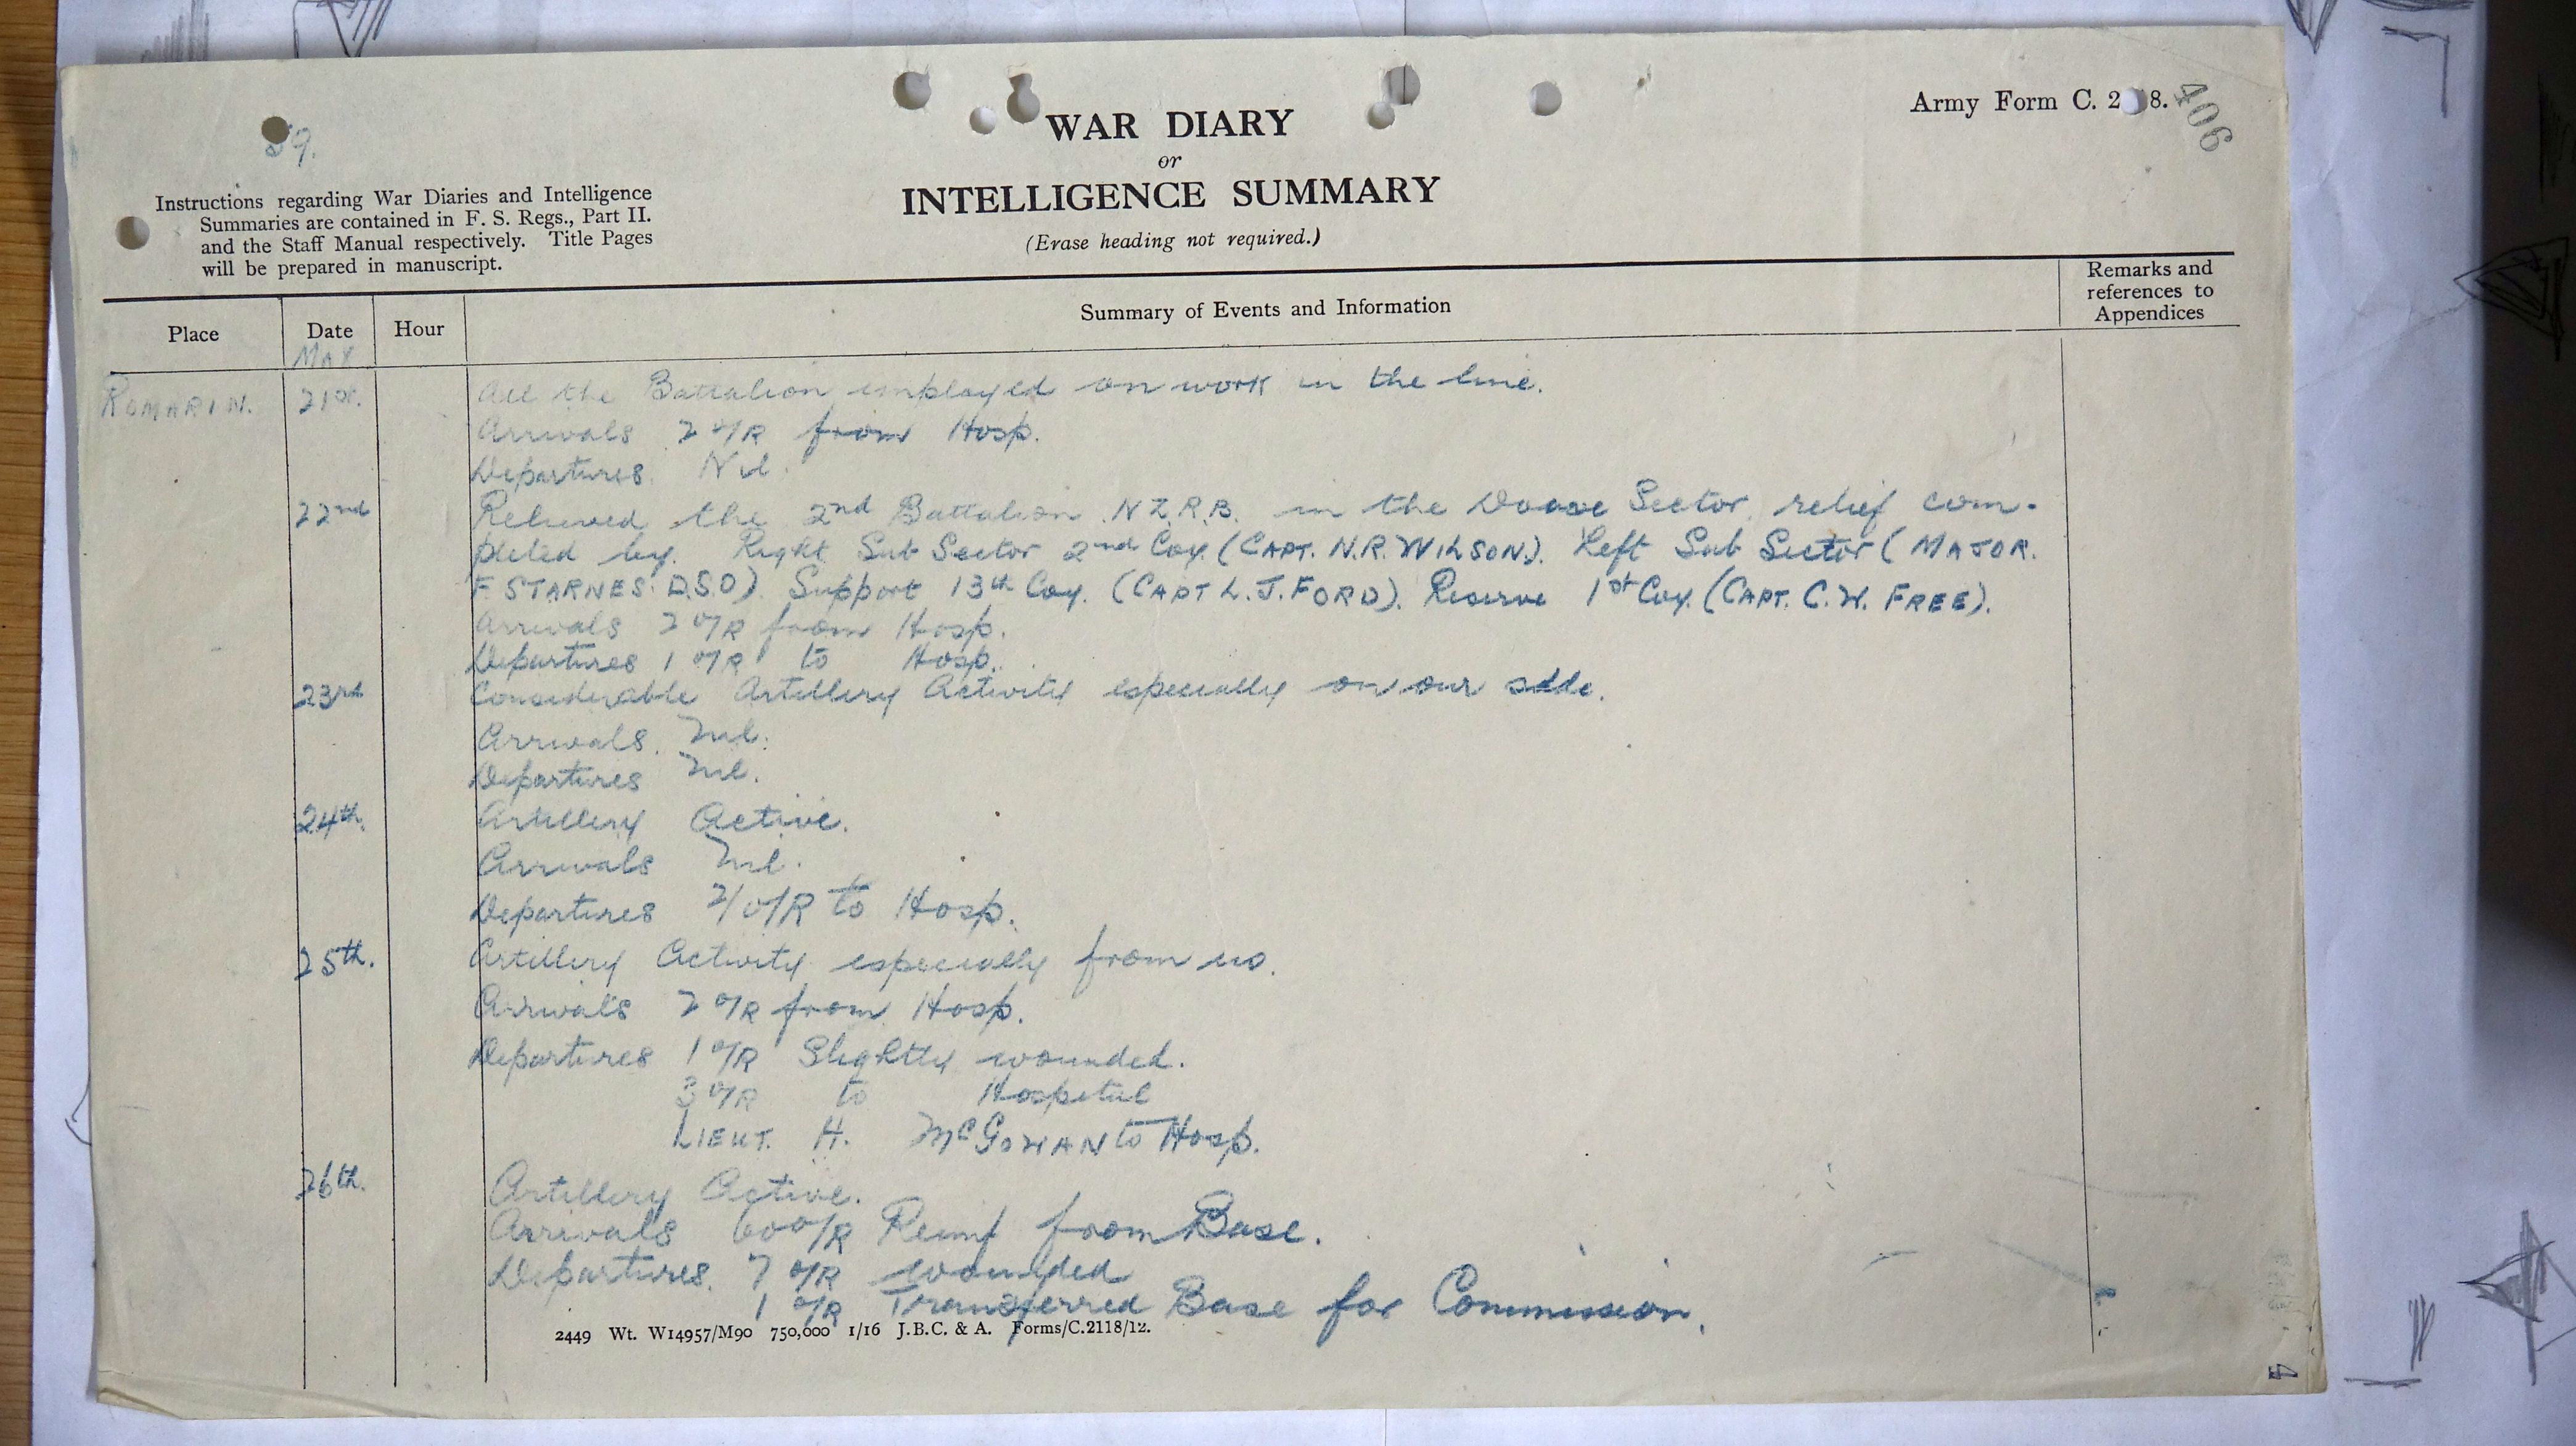 59.
Army Form C. 2 8.
406
WAR DIARY
or
INTELLIGENCE SUMMARY
(Erase heading not required.)
Instructions regarding War Diaries and Intelligence
Summaries are contained in F. S. Regs., Part II.
and the Staff Manual respectively. Title Pages
will be prepared in manuscript.
Place Date Hour Summary of Events and Information Remarks and references to Appendices
MAY
ROMARIN. 21st. All the Battalion employed on work in the line.
Arrivals 2 O/R from Hosp.
Departures. Nil.
22nd Relieved the 2nd Battalion N.Z.R.B. in the Douve Sector. relief com-
pleted by. Right Sub Sector 2nd Coy. (CAPT. N.R. WILSON). Left Sub Sector (MAJOR.
F STARNES. D.S.O). Support 13th Coy. (CAPT L. J. FORD). Reserve 1st Coy. (CAPT. C.W. FREE).
Arrivals 2 O/R from Hosp.
Departures 1 O/R to Hosp.
23rd Considerable Artillery Activity especially on our side.
Arrivals. Nil.
Departures Nil.
24th. Artillery Active.
Arrivals Nil.
Departures 2/O/R to Hosp.
25th. Artillery Activity especially from us.
Arrivals 2 O/R from Hosp.
Departures 1 O/R Slightly wounded.
3 O/R to Hospital
LIEUT. H. McGOWAN to Hosp.
26th. Artillery Active.
Arrivals 60 O/R Reinf from Base.
Departures. 7 O/R wounded
1 O/R Transferred Base for Commission.
2449 Wt. W14957/M90 750,000 1/16 J.B.C. & A. Forms/C.2118/12.
4